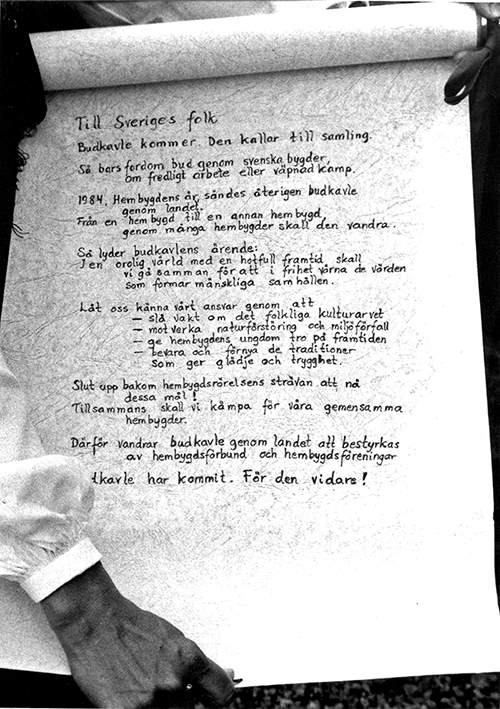 Till Sveriges folk
Budkavle kommer. Den kallar till samling.
Så bars fordom bud genom svenska bygder,
om fredligt arbete eller väpnad kamp.
1984, Hembygdens år, sändes återigen budkavle
genom landet.
Från en hembygd till en annan hembygd,
genom många hembygder skall den vandra.
Så lyder budkavlens ärende:
I en orolig värld med en hotfull framtid skall
vi gå samman för att i frihet värna de värden
som formar mänskliga samhällen.
Låt oss känna vårt ansvar genom att
- slå vakt om det folkliga kulturarvet
- motverka naturförstöring och miljöförfall
- ge hembygdens ungdom tro på framtiden
- bevara och förnya de traditioner
som ger glädje och trygghet.
Slut upp bakom hembygdsrörelsens strävan att nå
dessa mål!
Tillsammans skall vi kämpa för våra gemensamma
hembygder.
Därför vandrar budkavle genom landet att bestyrkas
av hembygdsförbund och hembygdsföreningar
dkavle har kommit. För den vidare!